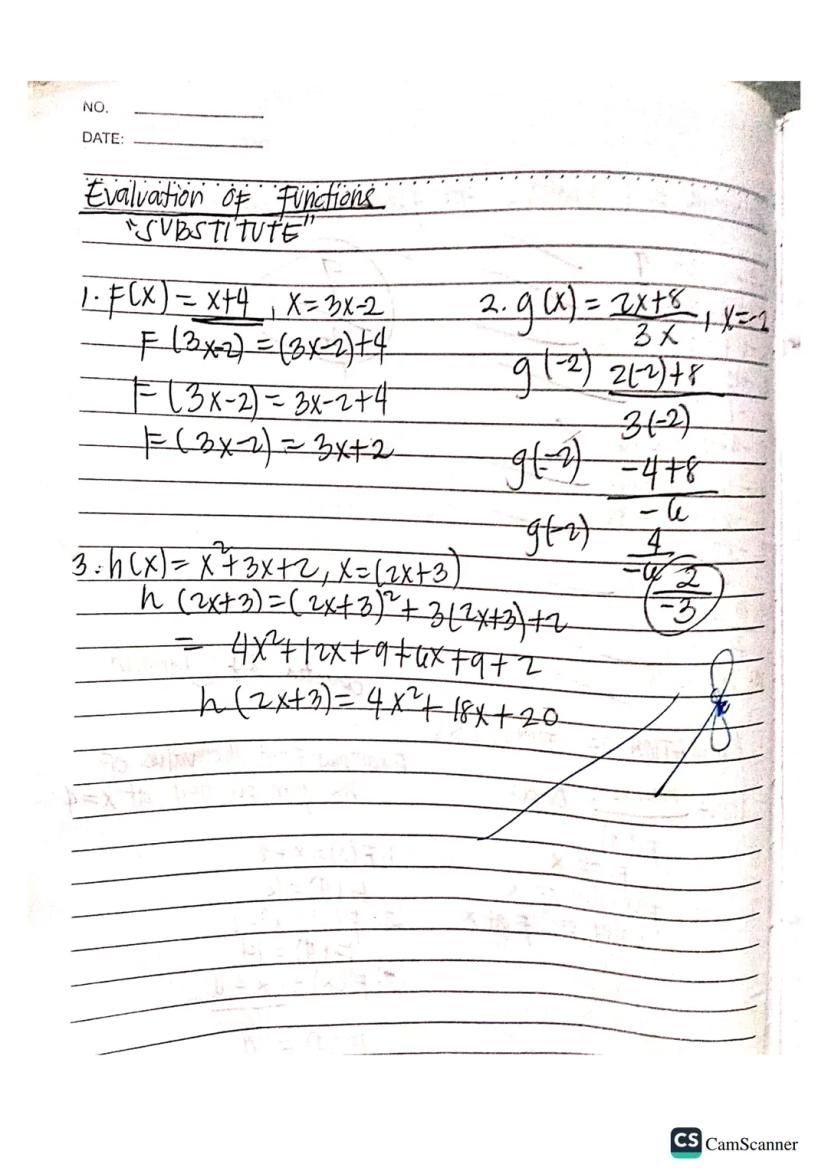 NO.
DATE:
Evaluation of Functions
"SUBSTITUTE"
1. F(x) = x+4, x = 3x-2
F(3x-2) = (3x-2)+4
F(3x-2) = 3x-2+4
F(3x-2) = 3x+2
2. g(x) = 2x+8 / 3x, x=-2
g(-2) 2(-2)+8 / 3(-2)
g(-2) -4+8 / -6
g(-2) 4 / -6
2 / -3
3. h(x) = x²+3x+2, x=(2x+3)
h (2x+3) = (2x+3)² + 3(2x+3)+2
= 4x²+12x+9+6x+9+2
h(2x+3) = 4x²+18x+20
CS CamScanner